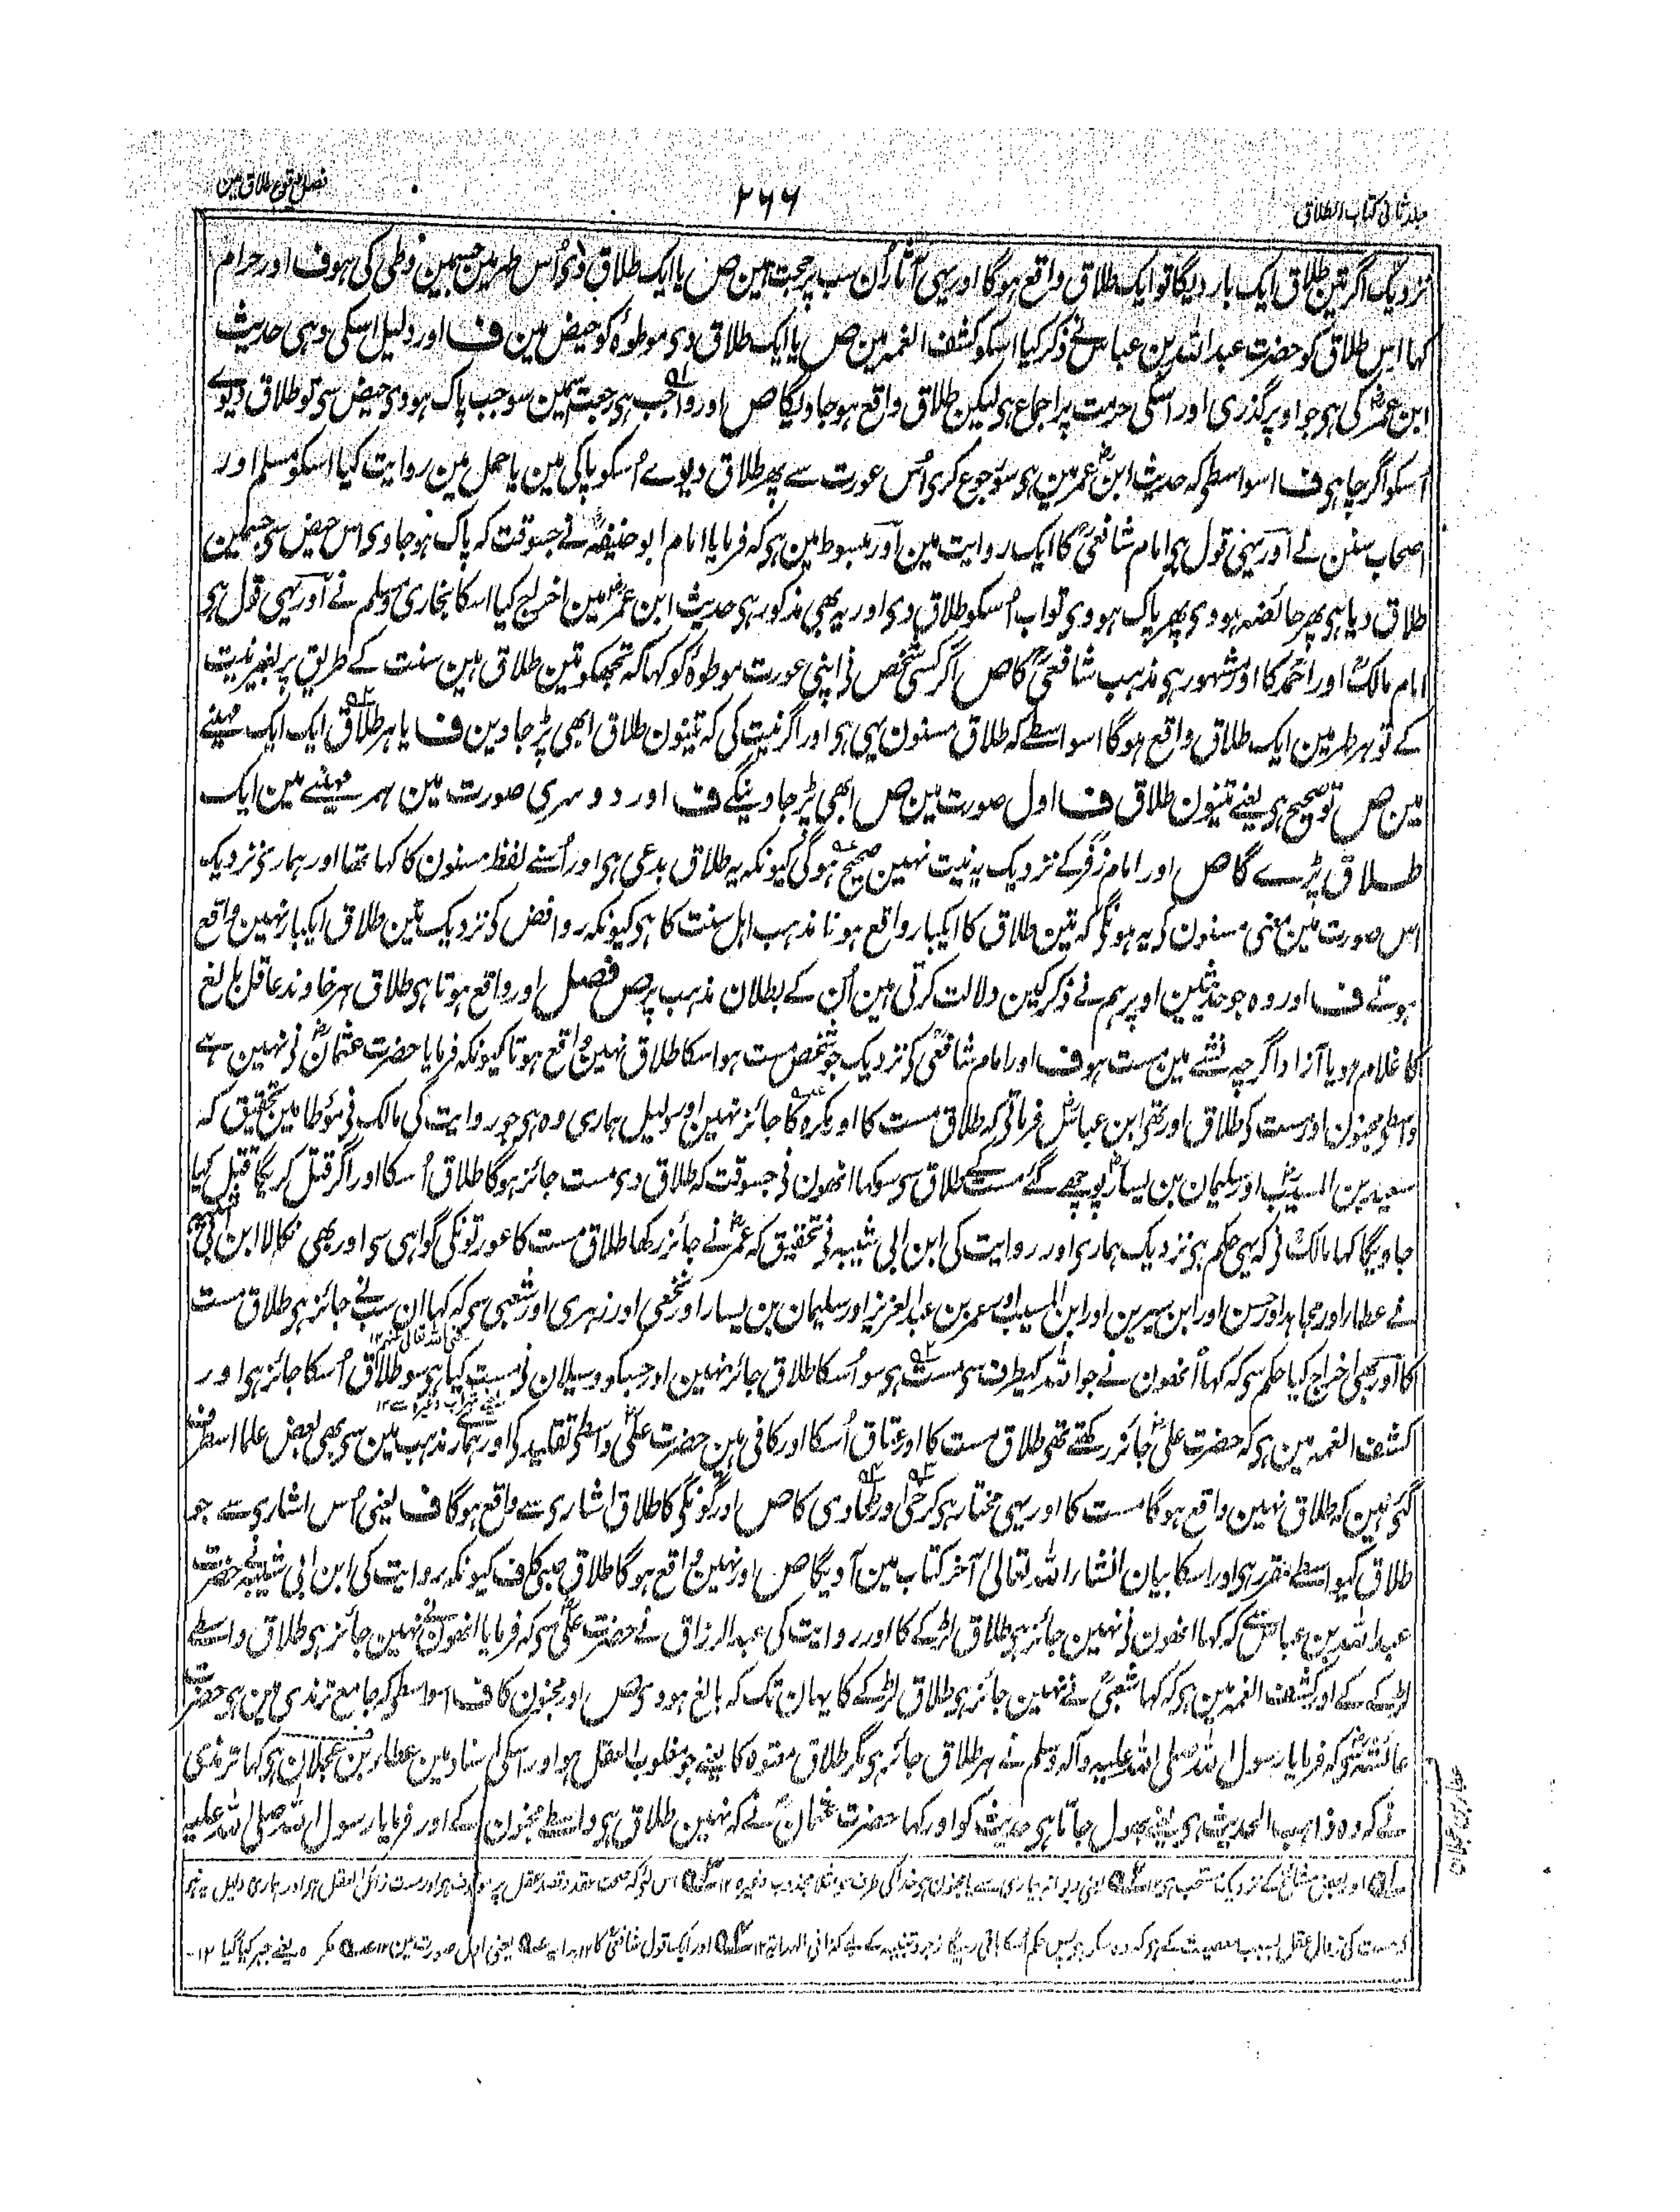 جلد ثانی کتاب الطلاق
۲۶۶
فصل وقوع طلاق مین
نزدیک اگر تین طلاق ایک بار دیگا تو ایک طلاق واقع ہوگا اور یہی آثار اُن سب پر حجت ہین ص یا ایک طلاق دی اُس طہر مین جسمین وطی کی ہو ف اور حرام
کہا اس طلاق کو حضرت عبد اللہ بن عباس نے ذکر کیا اسکو کشف الغمہ مین ص یا ایک طلاق دی موطوہ کو حیض مین ف اور دلیل اسکی وہی حدیث
ابن عمرؓ کی ہی جو اوپر گذری اور اسکی حرمت پر اجماع ہی لیکن طلاق واقع ہو جاویگا ص اور واجب ہی رجعت اسمین سو جب پاک ہووی حیض سی تو طلاق دیوے
اُسکو اگر چاہی ف اسواسطی کہ حدیث ابن عمرؓ مین ہی سو رجوع کری اُس عورت سے پھر طلاق دیوے اُسکو پاکی مین یا حمل مین روایت کیا اسکو مسلم اور
اصحاب سنن نے اور یہی قول ہی امام شافعیؒ کا ایک روایت مین اور مبسوط مین ہی کہ فرمایا امام ابو حنیفہؒ نے جسوقت کہ پاک ہو جاوی اس حیض سی جسمین
طلاق دیا ہی پھر حائضہ ہووی پھر پاک ہووی تو اب اُسکو طلاق دی اور یہ بھی مذکور ہی حدیث ابن عمرؓ مین اخراج کیا اسکا بخاری و مسلم نے اور یہی قول ہی
امام مالکؒ اور احمدؒ کا اور مشہور ہی مذہب شافعیؒ کا ص اگر کسی شخص نی اپنی عورت موطوہ کو کہا کہ تجھکو تین طلاق ہین سنت کے طریق پر بغیر نیت
کے تو ہر طہر مین ایک طلاق واقع ہوگا اسواسطے کہ طلاق مسنون یہی ہی اور اگر نیت کی کہ تینون طلاق ابھی پڑ جاوین ف یا ہر طلاق ایک ایک مہینے
مین ص تو صحیح ہی یعنے تینون طلاق ف اول صورت مین ص ابھی پڑ جاوینگے ف اور دوسری صورت مین ہر مہینے مین ایک
طلاق پڑے گا ص اور امام زفرؒ کے نزدیک یہ نیت نہین صحیح ہوگی کیونکہ یہ طلاق بدعی ہی اور اُسنے لفظ مسنون کا کہا تھا اور ہماری نزدیک
اس صورت مین معنی مسنون کی یہ ہونگی کہ تین طلاق کا ایکبار واقع ہونا مذہب اہل سنت کا ہی کیونکہ روافض کی نزدیک تین طلاق ایکبار نہین واقع
ہوتے ف اور وہ جو حدیثین اوپر ہم نے ذکر کین دلالت کرتی ہین اُن کے بطلان مذہب پر ص فصل اور واقع ہوتا ہی طلاق ہر خاوند عاقل بالغ
کا غلام ہو یا آزاد اگرچہ نشے مین مست ہو ف اور امام شافعیؒ کی نزدیک جو شخص مست ہو اسکا طلاق نہین واقع ہوتا کیونکہ فرمایا حضرت عثمانؓ نی نہین ہے
واسطی مجنون اور مست کی طلاق اور تھی ابن عباسؓ فرماتی کہ طلاق مست کا اور مکرہ کا جائز نہین اور دلیل ہماری وہ ہی جو روایت کی مالک نی مؤطا مین تحقیق کہ
سعید بن المسیبؓ اور سلیمان بن یسارؓ پوچھے گئے مست کے طلاق سی سو کہا انھون نی جسوقت کہ طلاق دی مست جائز ہوگا طلاق اُسکا اور اگر قتل کریگا قتل کیا
جاویگا کہا مالکؒ نی کہ یہی حکم ہی نزدیک ہماری اور روایت کی ابن ابی شیبہ نی تحقیق کہ عمرؓ نے جائز رکھا طلاق مست کا عورتونکی گواہی سی اور بھی نکالا ابن ابی شیبہ
نے عطا اور مجاہد اور حسن اور ابن سیرین اور ابن المسیب اور عمر بن عبد العزیز اور سلیمان بن یسار اور نخعی اور زہری اور شعبی سی کہ کہا ان سب نے جائز ہی طلاق مست
کا اور بھی اخراج کیا حکم سی کہ کہا اُنھون نے جو اللہ کیطرف سی مست ہی سو اُسکا طلاق جائز نہین اور جسکو شیطان نی مست کیا ہی سو طلاق اُسکا جائز ہی اور
کشف الغمہ مین ہی کہ حضرت علیؓ جائز رکھتے تھی طلاق مست کا اور عتاق اُسکا اور کافی ہین حضرت علیؓ واسطی تقلید کی اور ہمارے مذہب مین سی بھی بعض علما اسطرف
گئی ہین کہ طلاق نہین واقع ہوگا مست کا اور یہی مختار ہی کرخی اور طحاوی کا ص اور گونگی کا طلاق اشاری سے واقع ہوگا ف یعنی اُس اشاری سے جو
طلاق کیواسطے مقرر ہی اور اسکا بیان انشاء اللہ تعالیٰ آخر کتاب مین آویگا ص اور نہین واقع ہوگا طلاق صبی کا ف کیونکہ روایت کی ابن ابی شیبہ نے حضرت
عبد اللہ بن عباسؓ سے کہ کہا انھون نی نہین جائز ہی طلاق لڑکے کا اور روایت کی عبد الرزاق نے حضرت علیؓ سی کہ فرمایا انھون نے نہین جائز ہی طلاق واسطے
لڑکے کے اور کشف الغمہ مین ہی کہ کہا شعبیؒ نے نہین جائز ہی طلاق لڑکے کا یہان تک کہ بالغ ہووی ص اور مجنون کا ف اسواسطی کہ جامع ترمذی مین ہی حضرت
عائشہؓ سی کہ فرمایا رسول اللہ صلی اللہ علیہ وآلہ وسلم نے ہر طلاق جائز ہی مگر طلاق معتوہ کا یعنے جو مغلوب العقل ہو اور اسکی اسناد مین عطاء بن عجلان ہی کہا ترمذی
نے کہ وہ ذاہب الحدیث ہی یعنے بھول جاتا ہی حدیث کو اور کہا حضرت عثمانؓ نے کہ نہین طلاق ہی واسطے مجنون کے اور فرمایا رسول اللہ صلی اللہ علیہ
اور بعض مشائخ کے نزدیک مستحب ہی ۱۲ یعنی دیوانہ بیماری سے یا مجنون ہو خدا کی طرف سے مثلا مجذوب وغیرہ ۱۲ اس لئے کہ صحت قصد عقل پر موقوف ہی اور مست زائل العقل ہی اور ہماری دلیل یہ ہی
کہ مست کی زوال عقل بسبب معصیت کے ہی کہ وہ سکر ہی پس حکم اُسکا باقی رہیگا زجر و تنبیہ کے لیے کذا فی الہدایہ ۱۲ اور ایک قول شافعیؒ کا ۱۲ ہدایہ یعنی اول صورت مین ۱۲ مکرہ یعنے جبر کیا گیا ۱۲